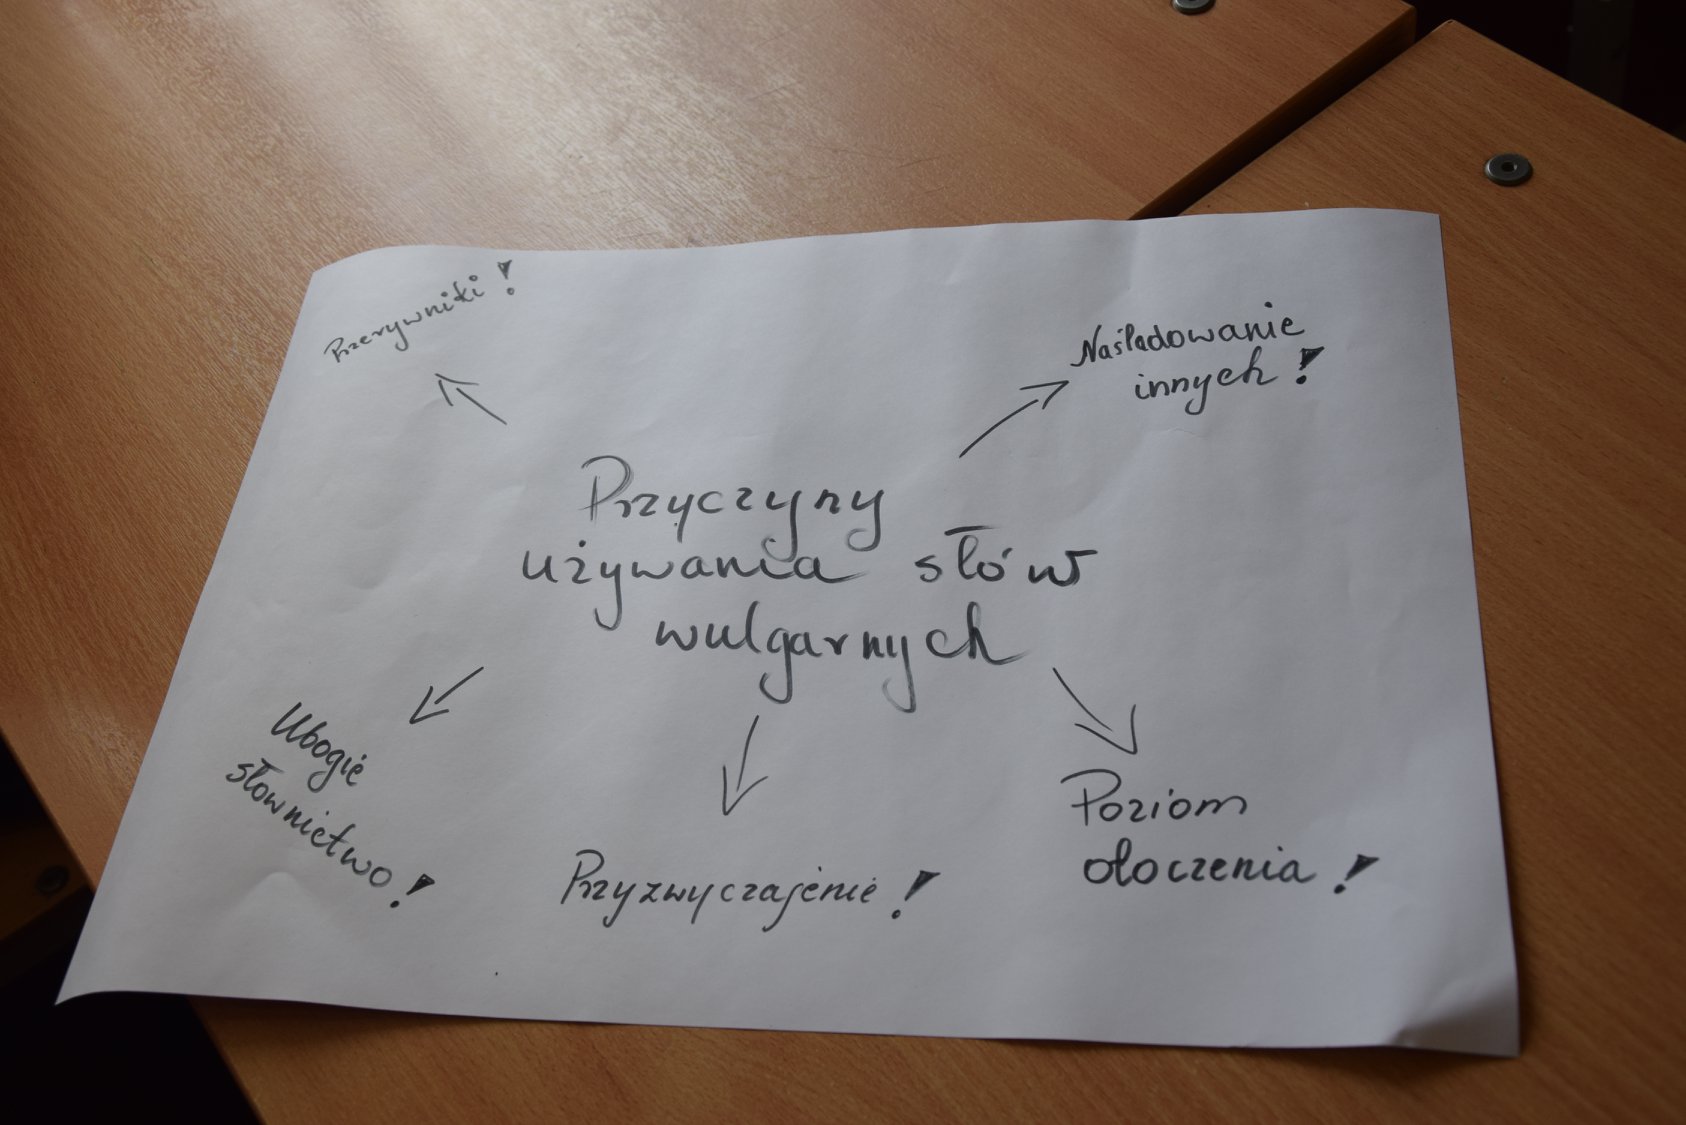 Przerywniki!
Naśladowanie
innych!
Przyczyny
używania słów
wulgarnych
Ubogie
słownictwo!
Przyzwyczajenie!
Poziom
otoczenia!